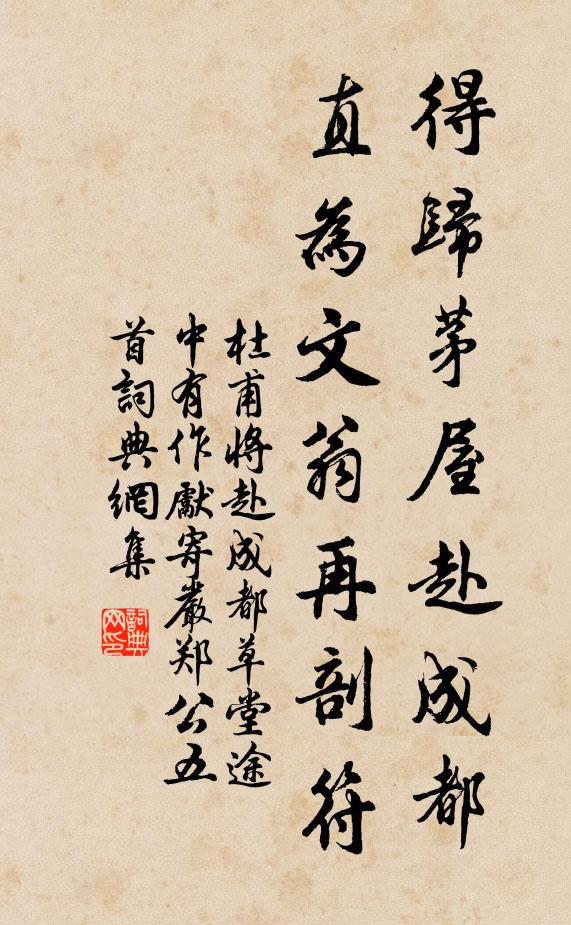 得歸茅屋赴成都
直為文翁再剖符
杜甫將赴成都草堂途
中有作獻寄嚴郑公五
首詞典網集
詞典網印